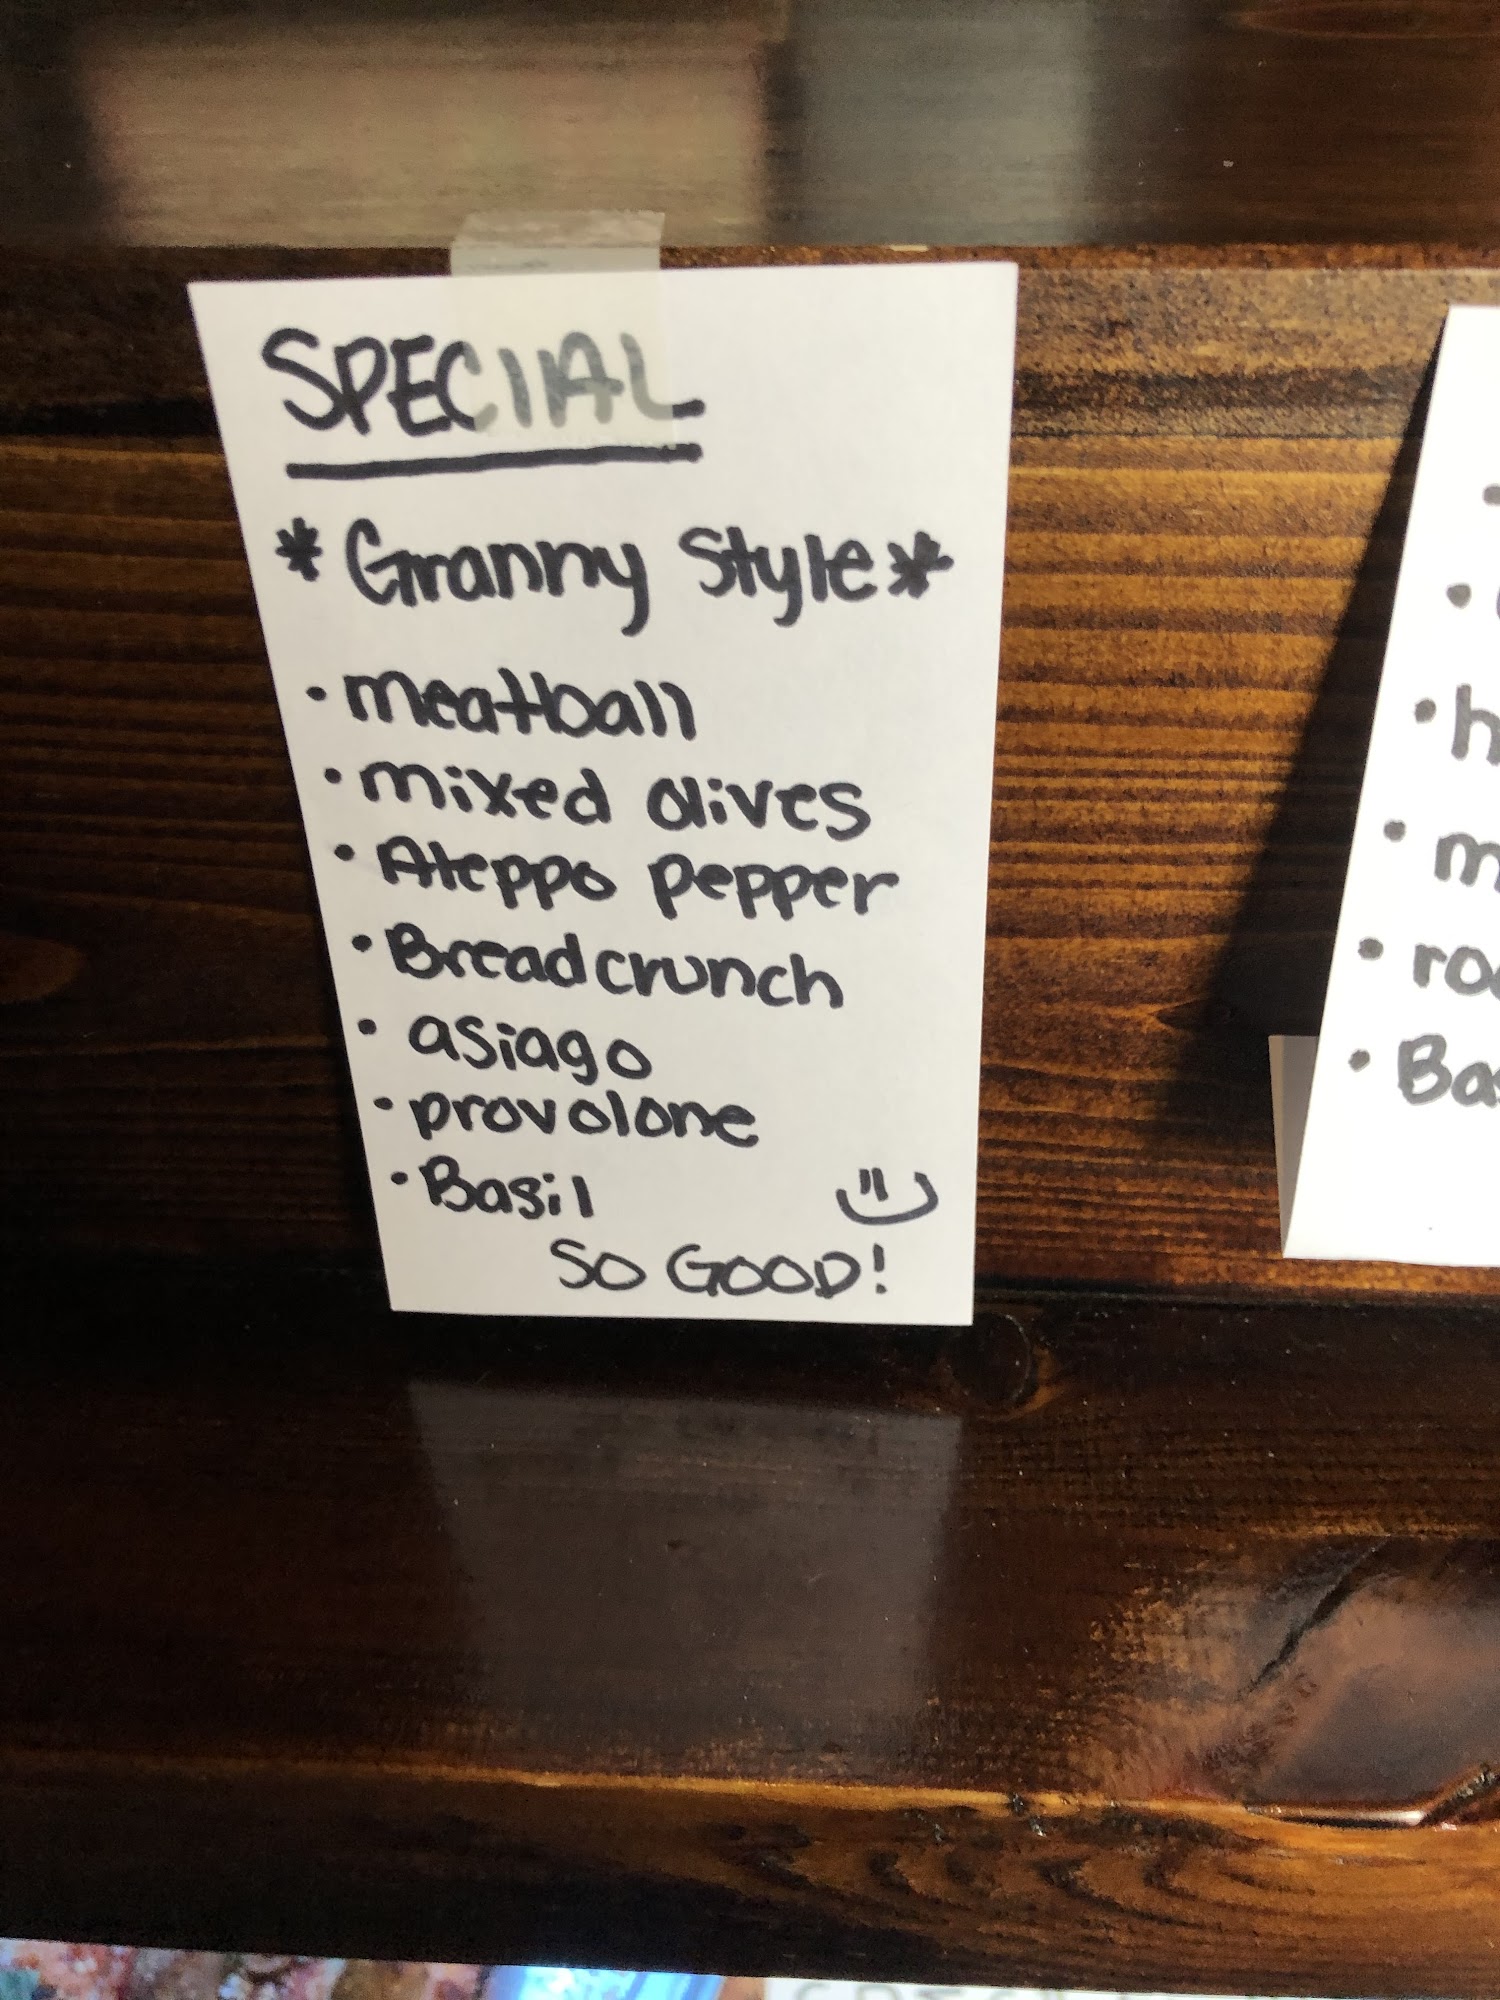 SPECIAL
*Granny Style*
• meatball
• mixed olives
• Aleppo pepper
• Breadcrunch
• asiago
• provolone
• Basil
SO GOOD!